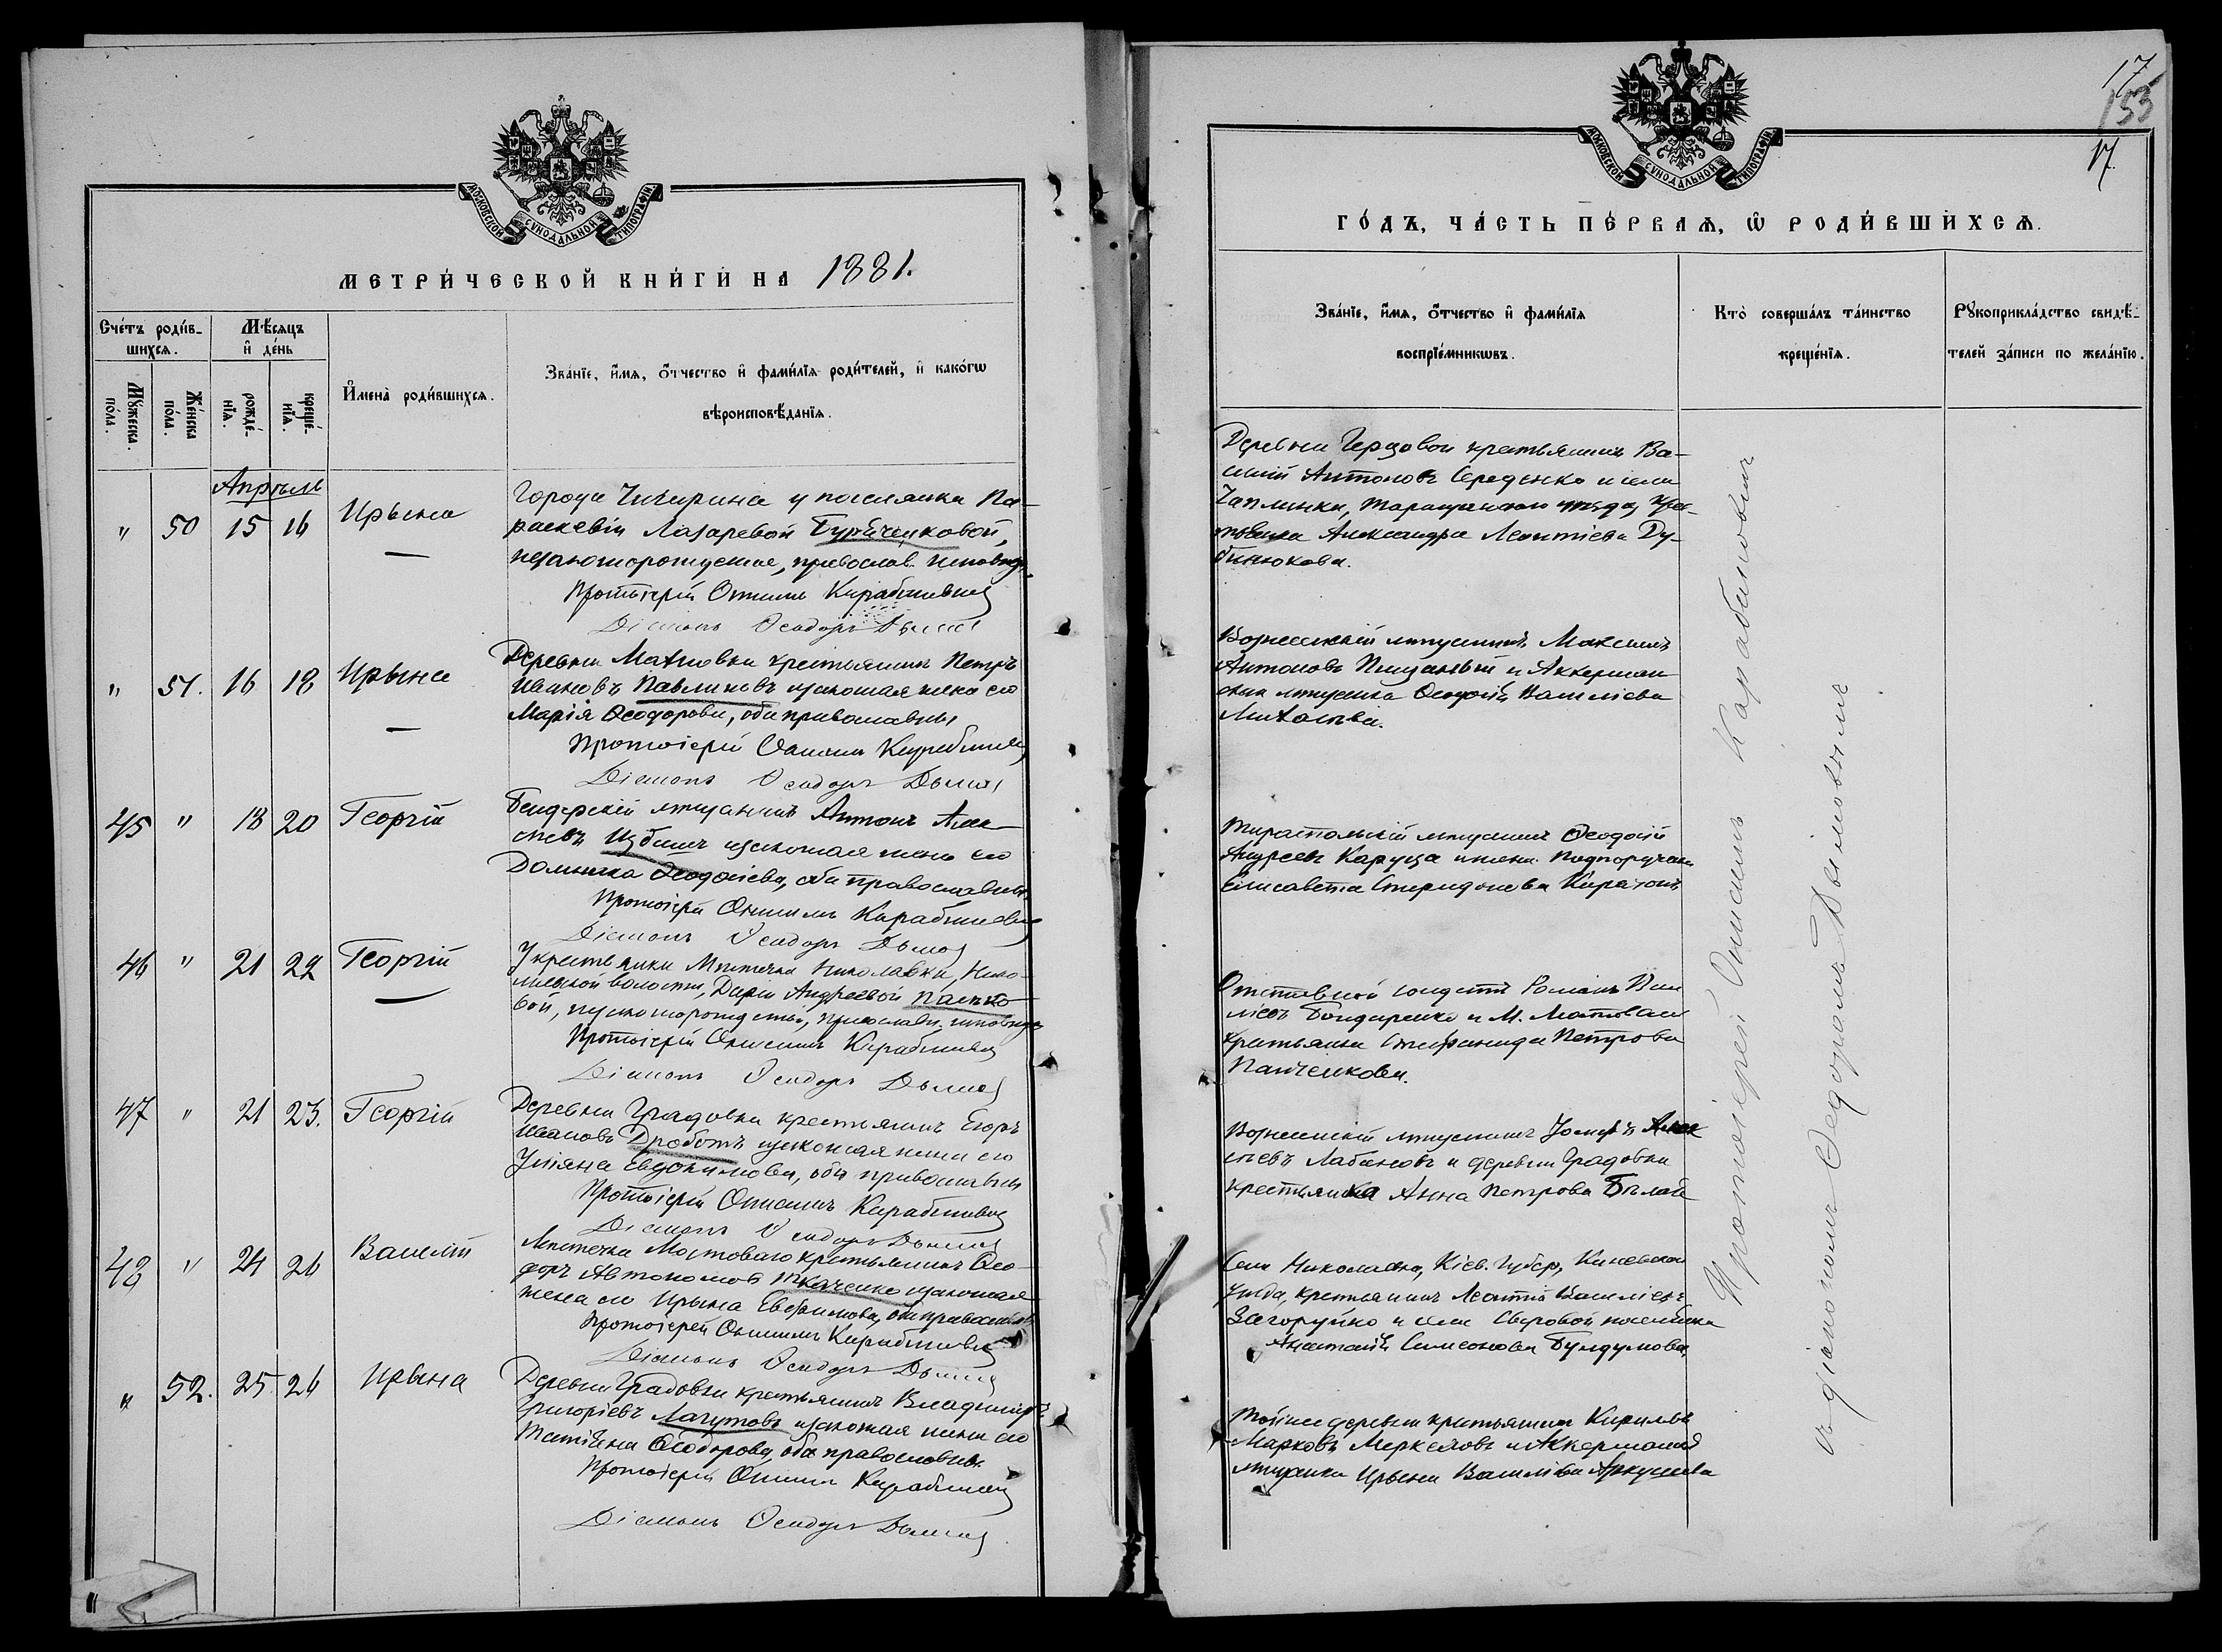 МОСКОВСКОЙ СУНОДАЛЬНОЙ ТИПОГРАФІИ
МЕТРИ́ЧЕСКОЙ КНИ́ГИ НА 1881.
Сче́тъ роди́в-
шихся.
Мѣ́сяцъ
и҆ де́нь
Мꙋ́жеска
по́ла.
Же́нска
по́ла.
рожде́-
нїѧ.
креще́-
нїѧ.
И҆мена̀ роди́вшихся.
Зва́нїе, и҆́мѧ, ѻ҆́тчество и҆ фами́лїѧ роди́телей, и҆ како́гѡ
вѣроисповѣ́данїѧ.
Апрѣль
" 50 15 16 Ирына
Города Чигирина у поселянки Па-
раскевіи Лазаревой
незаконорожденная, православ. исповѣд.
Протоіерей Онисимъ Карабиневичъ
Діаконъ Ѳеодоръ
" 51. 16 18 Ирына
Деревни крестьянинъ Петръ
Ивановъ Павлиновъ и законная жена его
Марія Ѳеодорова, оба православны
Протоіерей Онисимъ Карабиневичъ
Діаконъ Ѳеодоръ
45 " 18 20 Георгій
Бендерскій мѣщанинъ Антонъ Алек-
сѣевъ и законная жена его
Домника Ѳеодосіева, оба православны.
Протоіерей Онисимъ Карабиневичъ
Діаконъ Ѳеодоръ
46 " 21 22 Георгій
У крестьянки Мѣстечка Николаевки, Нико-
лаевской волости, Даріи Андреевой
вой, незаконорожденъ, православн. исповѣд.
Протоіерей Онисимъ Карабиневичъ
Діаконъ Ѳеодоръ
47 " 21 23. Георгій
Деревни Градовки крестьянинъ Егоръ
Ивановъ Дроботъ и законная жена его
Уліяна Евдокимова, оба православны
Протоіерей Онисимъ Карабиневичъ
Діаконъ Ѳеодоръ
48 " 24 26 Василій
Мѣстечка Мостоваго крестьянинъ Ѳео-
доръ Автономовъ Ткаченко и законная
жена его Ирына Евфимова, оба православны
Протоіерей Онисимъ Карабиневичъ
Діаконъ Ѳеодоръ
" 52. 25. 26 Ирына
Деревни Градовки крестьянинъ Владиміръ
Григоріевъ Лагутовъ и законная жена его
Татіана Ѳеодорова, оба православны.
Протоіерей Онисимъ Карабиневичъ
Діаконъ Ѳеодоръ
17
153
17.
МОСКОВСКОЙ СУНОДАЛЬНОЙ ТИПОГРАФІИ
ГО́ДЪ, ЧА́СТЬ ПЕ́РВАѦ, Ѡ҆ РОДИ́ВШИХСѦ.
Зва́нїе, и҆́мѧ, ѻ҆́тчество и҆ фами́лїѧ
воспрїе́мникѡвъ.
Кто̀ соверша́лъ та́инство
креще́нїѧ.
Рꙋкоприкла́дство свидѣ́-
телей за́писи по жела́нїю.
Деревни крестьянинъ Ва-
силій Антоновъ Середенко и села
Чаплинки, Таращанскаго уѣзда, крес-
тьянка Александра Леонтіева Ду-
бинюкова.
Вознесенскій мѣщанинъ Максимъ
Антоновъ и Аккерман-
ская мѣщанка Ѳеодосія Василіева
Тираспольскій мѣщанинъ Ѳеодосій
Андреевъ Каруца и жена подпоручика
Елисавета Спиридонова
Отставной солдатъ Романъ Васи-
ліевъ Бондаренко и М.
крестьянка Стефанида Петрова
Панченкова.
Вознесенскій мѣщанинъ Алек-
сѣевъ Лабановъ и деревни Градовки
крестьянка Анна Петрова
Села Николаевки, Кіев. Губер., Каневскаго
Уѣзда, крестьянинъ Леонтій Василіевъ
Загоруйко и села поселянка
Анастасія Симеонова
Той же деревни крестьянинъ Кириллъ
Марковъ Меркеловъ и Аккерманская
мѣщанка Ирына Василіева
Протоіерей Онисимъ Карабиневичъ
съ діакономъ Ѳеодоромъ